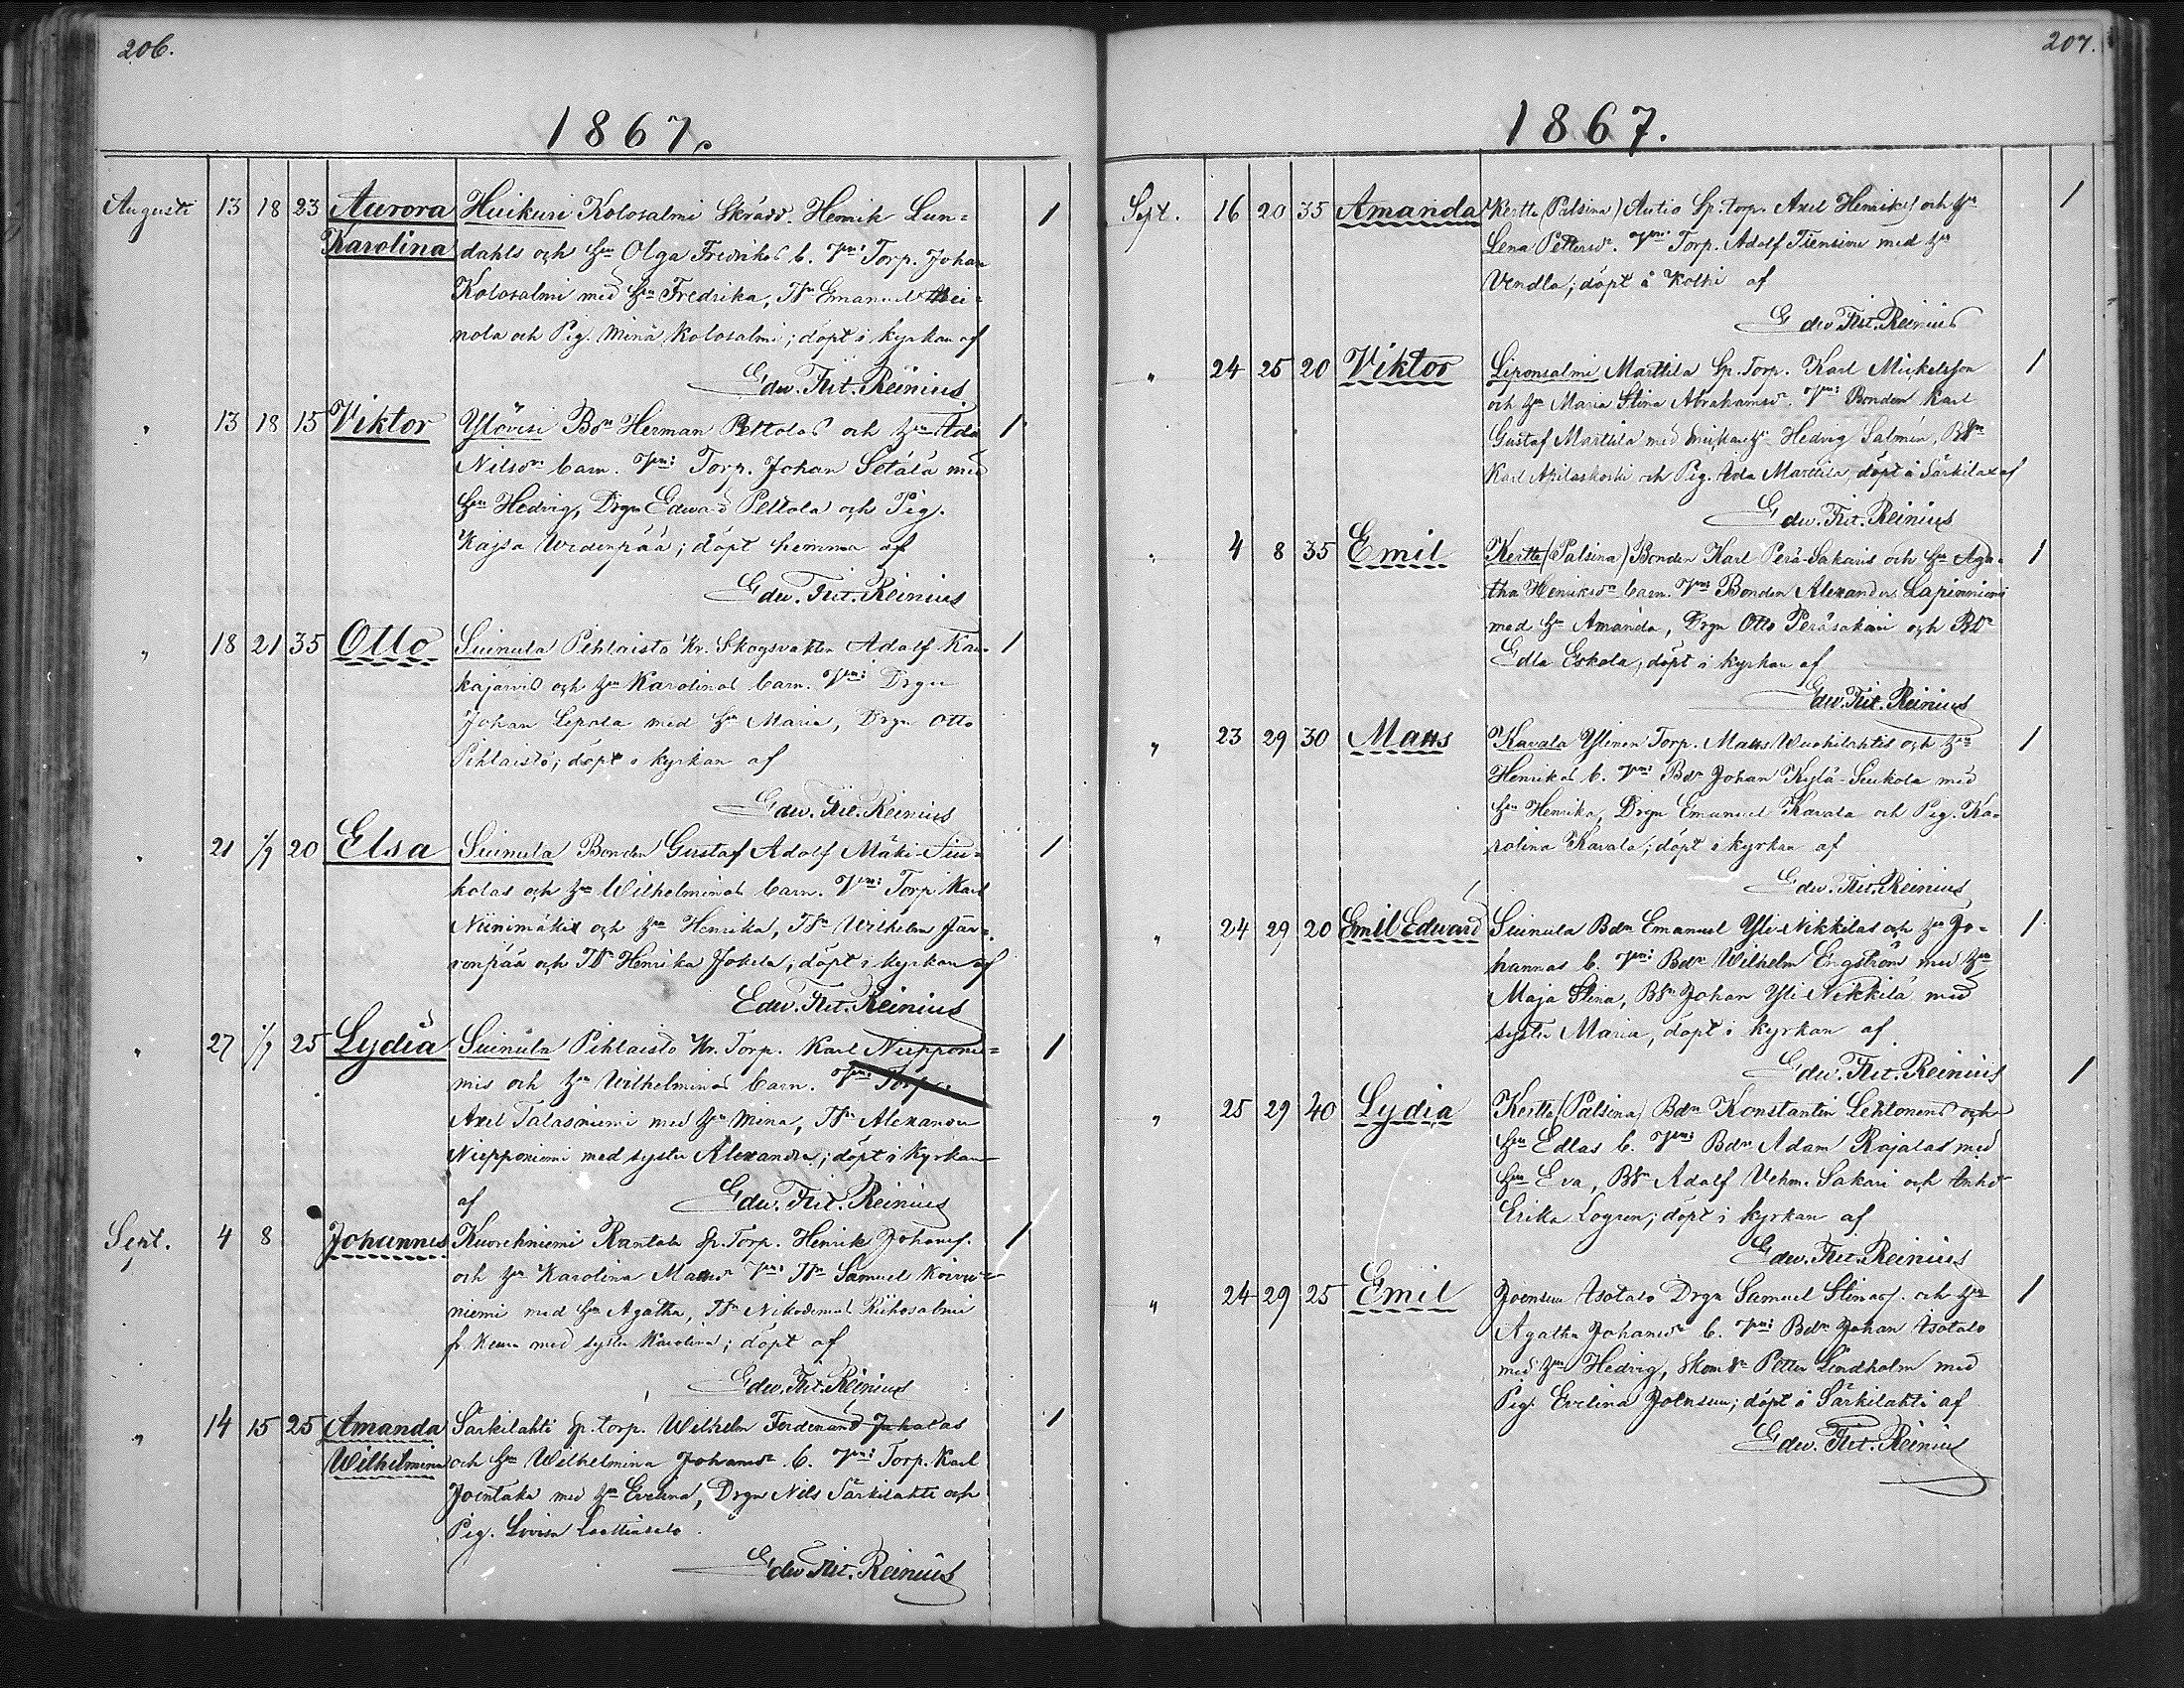 206.
1867.
Augusti 13 18 23 Aurora Huikuri Kolosalmi Skrädd. Henrik Lun=
Karolina dahls och Hu Olga Fredrikas b. Vni: Torp. Johan
Kolosalmi med Hu Fredrika, Emanuel Hei=
nola och Pig. Mina Kolosalmi; döpt i kyrkan af
Edw. Frit. Reinius
" 13 18 15 Viktor Ylövesi Bdn Herman Peltolas och Hu Ada
Nilsdr barn. Vni: Torp. Johan Setälä med
Hu Hedvig, Drgn Edward Peltola och Pig.
Kajsa Wedenpää; döpt hemma af
Edw. Frit. Reinius
" 18 21 35 Otto Suinula Pihlaisto Kr. Skogsvakten Adolf Kau=
kajärvis och Hu Karolinas barn. Vni: Drgn
Johan Lepola med Hu Maria, Drgn Otto
Pihlaisto; döpt i kyrkan af
Edw. Frit. Reinius
" 21 1/9 20 Elsa Suinula Bonden Gustaf Adolf Mäki-Siu=
kolas och Hu Wilhelminas barn. Vni: Torp Karl
Niinimäki och Hu Henrika, Wilhelm Jär=
venpää och Henrika Jokela; döpt i kyrkan af
Edw. Frit. Reinius
" 27 1/9 25 Lydia Suinula Pihlaisto Kr. Torp. Karl Niepponie=
mis och Hu Wilhelminas barn. Vni: Torp.
Axel Talasniemi med Hu Mina, Alexander
Niepponiemi med syster Alexandra; döpt i Kyrkan
af Edw. Frit. Reinius
Sept. 4 8 Johannes Kuorehniemi Rantala Sp. Torp. Henrik Johansf.
och Hu Karolina Mattsdr Vni: Samuel Koivu=
niemi med Hu Agatha, Nikodemus Riihosalmi
fr Keuru med syster Karolina; döpt af
Edw. Frit. Reinius
" 14 15 25 Amanda Särkilahti Sp. torp. Wilhelm Ferdinand Jahalas
Wilhelmina och Hu Wilhelmina Johansdr b. Vni: Torp. Karl
Joentaka med Hu Evelina, Drgn Nils Särkilahti och
Pig. Lovisa
Edw Frit. Reinius
207.
1867.
Sept. 16 20 35 Amanda Kertte (Palsina) Autio Sp. torp. Axel Henriks. och Hu
Lena Pettersdr. Vni: Torp. Adolf med Hu
Vendla; döpt i Kolhi af
Edw Frit. Reinius
" 24 25 20 Viktor Liponsalmi Marttila Sp. Torp. Karl Mickelsson
och Hu Maria Stina Abrahamsdr. Vni: Bonden Karl
Gustaf Marttila med Hedvig Salmén,
Karl och Pig. Ida Marttila, döpt i Särkilax af
Edw. Frit. Reinius
" 4 8 35 Emil Kertte (Palsina) Bonden Karl Perä-Sakaris och Hu Aga=
tha Henriksdr barn. Vni Bonden Alexander Lapinniemi
med Hu Amanda, Drgn Otto Peräsakari och Bdr
Edla Eskola, döpt i kyrkan af
Edw. Frit. Reinius
" 23 29 30 Matts Kavala Ylinen Torp. Matts Wuohilahtis och Hu
Henrikas b. Vni: Bdn Johan Kylä-Siukola med
Hu Henrika, Drgn Emanuel Kavala och Pig. Ka=
rolina Kavala; döpt i kyrkan af
Edw. Frit. Reinius
" 24 29 20 Emil Edward Suinula Bdn Emanuel Yli-Nikkilas och Hu Jo=
hannas b. Vni: Bdn Wilhelm Engström med Hu
Maja Stina, Johan Yli Nikkilä med
syster Maria, döpt i kyrkan af
Edw. Frit. Reinius
" 25 29 40 Lydia Kertte (Palsina) Bdn Konstantin Lehtonens och
Hu Edlas b. Vni: Bdn Adam Rajalas med
Hu Eva, Adolf Vehm. Sakari och
Erika Logren; döpt i kyrkan af
Edw. Frit. Reinius
" 24 29 25 Emil Joensuu Isotalo Drgn Samuel Stinaf. och Hu
Agatha Johansdr b. Vni: Bdn Johan Isotalo
med Hu Hedvig, Petter Lindholm med
Pig. Evelina Joensuu; döpt i Särkilahti af
Edw. Frit. Reinius